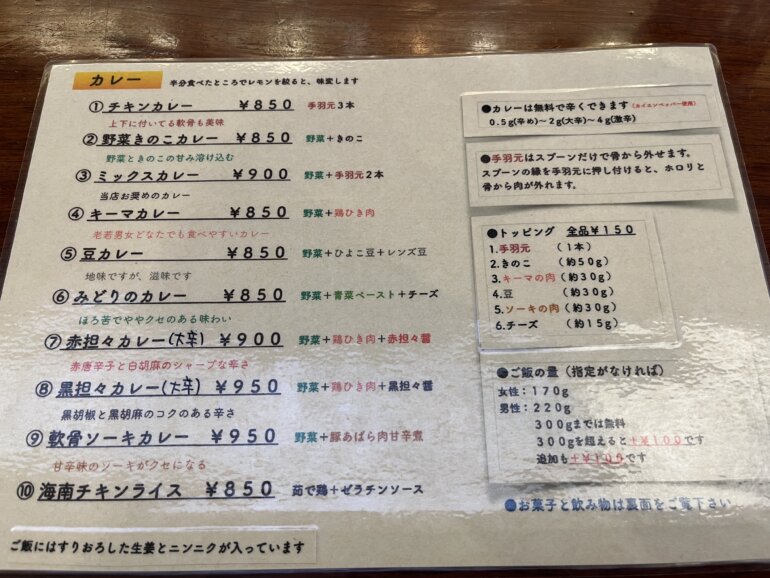 カレー 半分食べたところでレモンを絞ると、味変します
①チキンカレー ￥850 手羽元3本
上下に付いてる軟骨も美味
②野菜きのこカレー ￥850 野菜+きのこ
野菜ときのこの甘み溶け込む
③ミックスカレー ￥900 野菜+手羽元2本
当店お奨めのカレー
④キーマカレー ￥850 野菜+鶏ひき肉
老若男女どなたでも食べやすいカレー
⑤豆カレー ￥850 野菜+ひよこ豆+レンズ豆
地味ですが、滋味です
⑥みどりのカレー ￥850 野菜+青菜ペースト+チーズ
ほろ苦でややクセのある味わい
⑦赤担々カレー(大辛) ￥900 野菜+鶏ひき肉+赤担々醤
赤唐辛子と白胡麻のシャープな辛さ
⑧黒担々カレー(大辛) ￥950 野菜+鶏ひき肉+黒担々醤
黒胡椒と黒胡麻のコクのある辛さ
⑨軟骨ソーキカレー ￥950 野菜+豚あばら肉甘辛煮
甘辛味のソーキがクセになる
⑩海南チキンライス ￥850 茹で鶏+ゼラチンソース
ご飯にはすりおろした生姜とニンニクが入っています
●カレーは無料で辛くできます(カイエンペッパー使用)
0.5g(辛め)~2g(大辛)~4g(激辛)
●手羽元はスプーンだけで骨から外せます。
スプーンの縁を手羽元に押し付けると、ホロリと
骨から肉が外れます。
●トッピング 全品￥150
1.手羽元 (1本)
2.きのこ (約50g)
3.キーマの肉(約30g)
4.豆 (約30g)
5.ソーキの肉(約30g)
6.チーズ (約15g)
●ご飯の量(指定がなければ)
女性:170g
男性:220g
300gまでは無料
300gを超えると+￥100です
追加も+￥100です
●お菓子と飲み物は裏面をご覧下さい